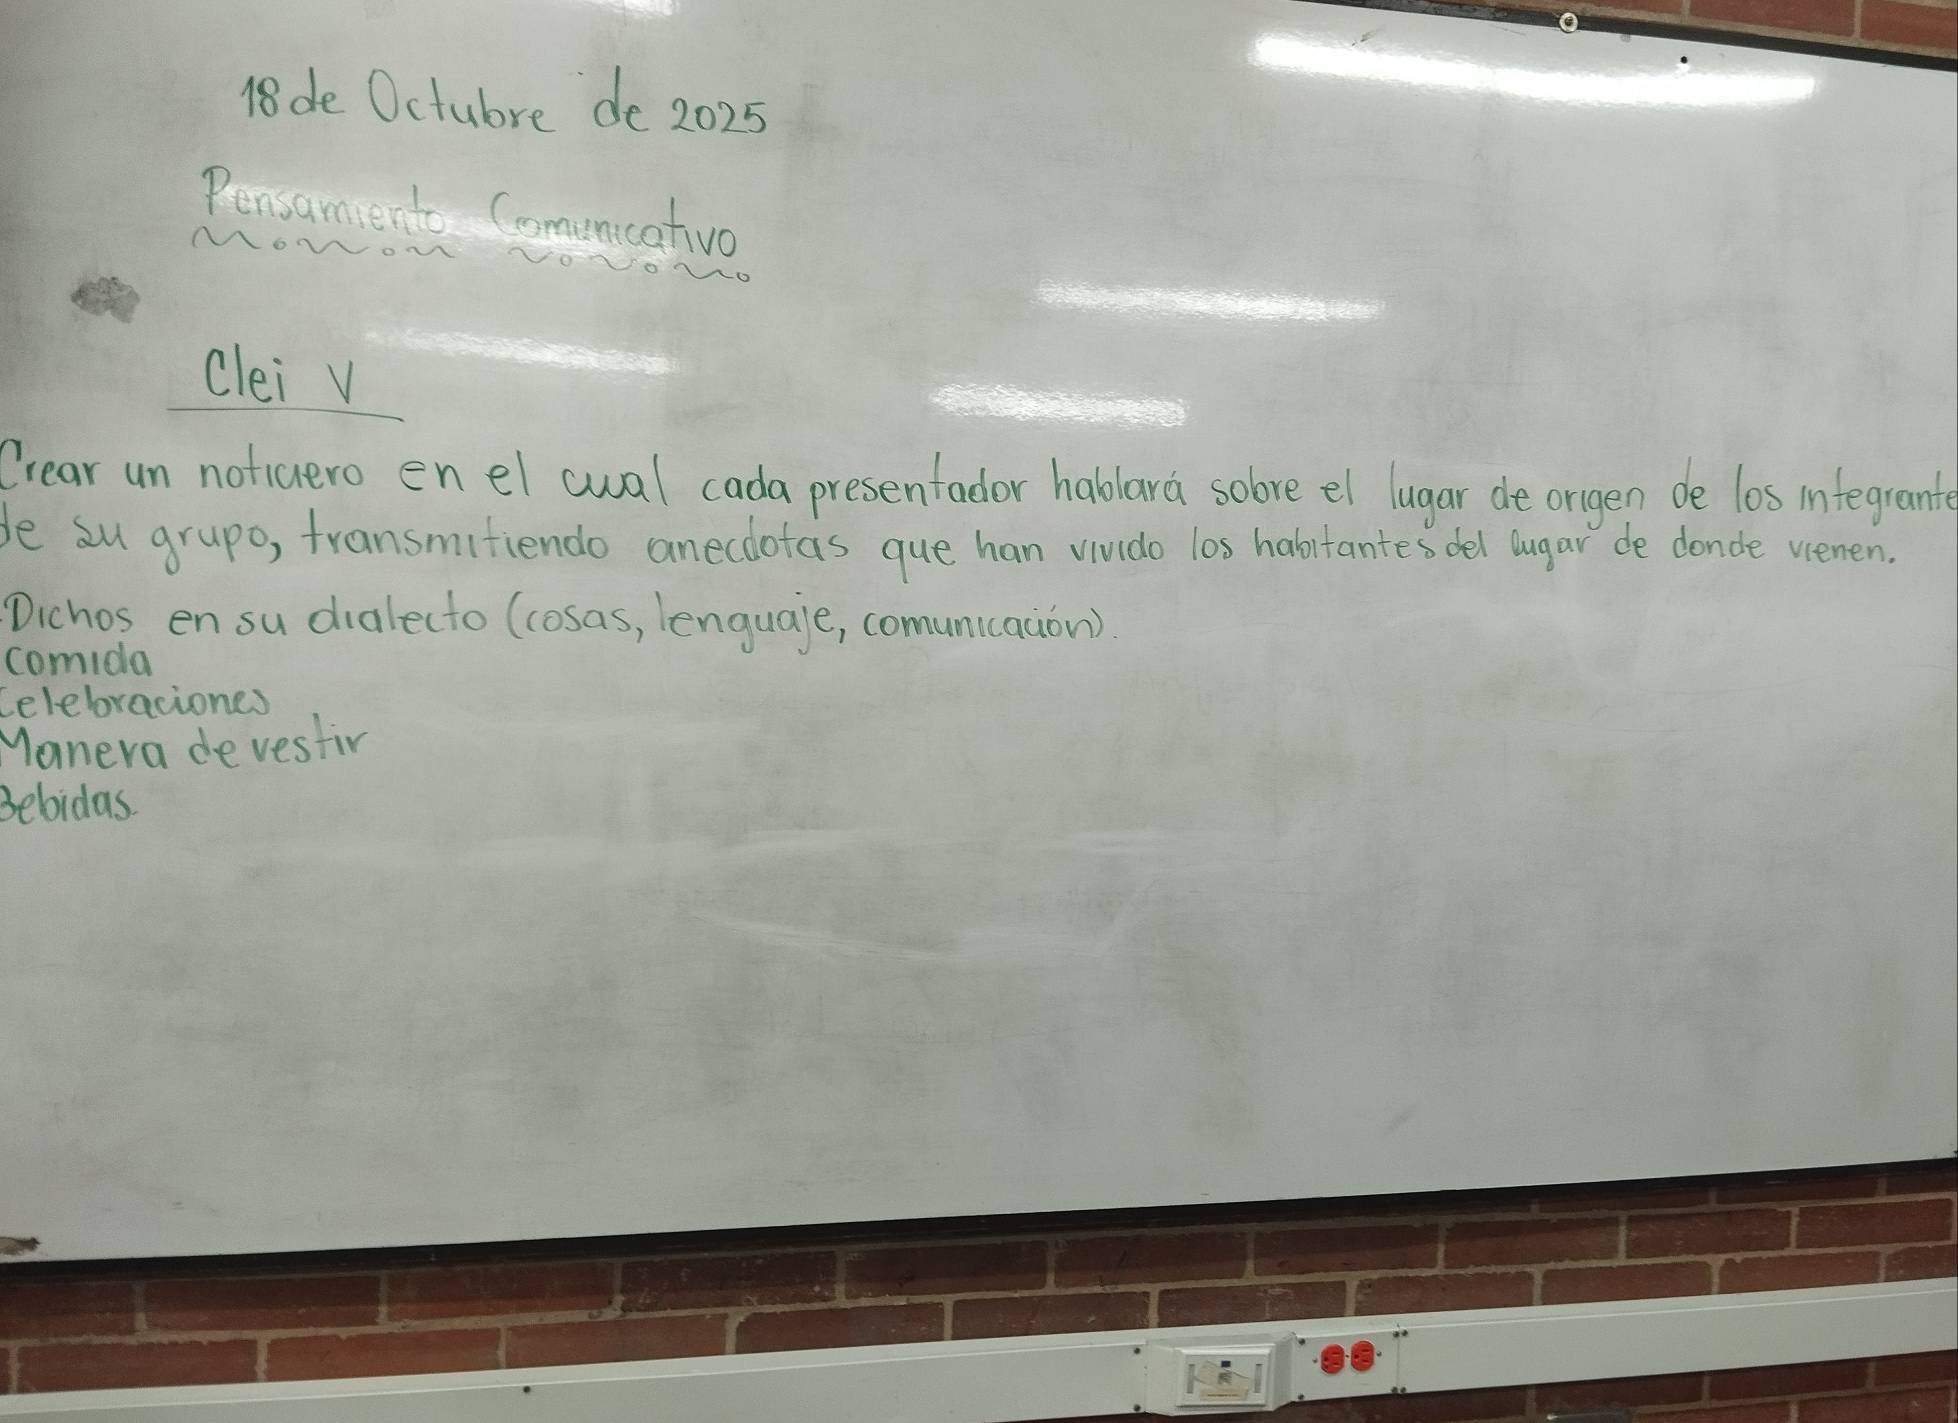 18 de Octubre de 2025
Pensamiento Comunicativo
Clei V
Crear un noticiero en el cual cada presentador hablará sobre el lugar de origen de los integrante
de su grupo, transmitiendo anecdotas que han vivido los habitantes del lugar de donde vienen.
Dichos en su dialecto (cosas, lenguaje, comunicación).
comida
Celebraciones
Manera de vestir
Bebidas.